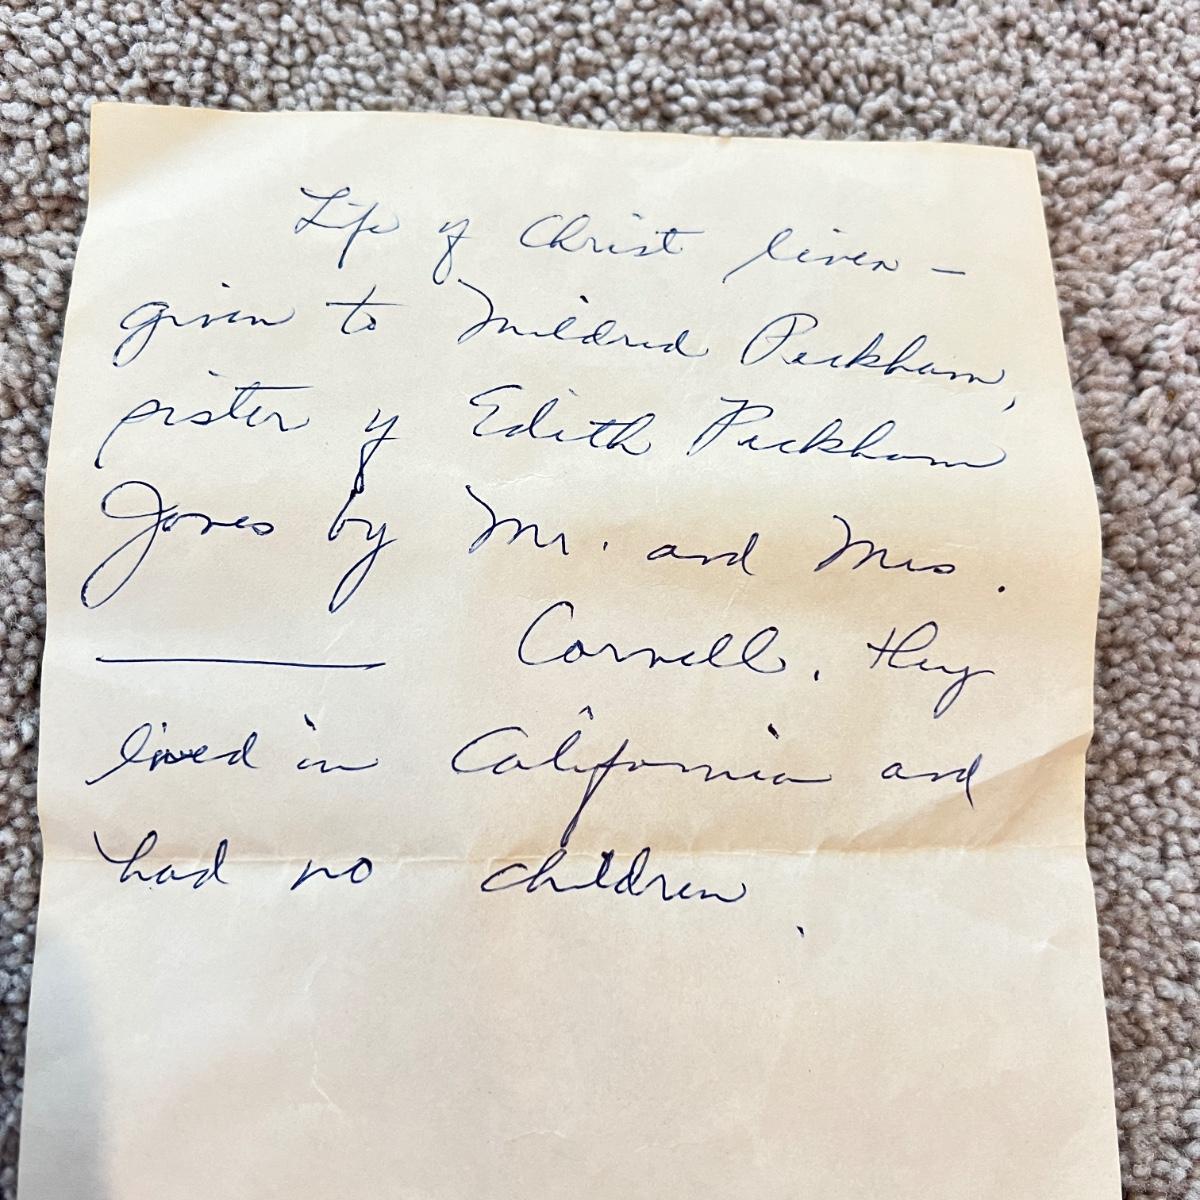 Life of Christ linen –
given to Mildred Peckham,
sister of Edith Peckham
Jones by Mr. and Mrs.
________ Cornell. They
lived in California and
had no children.